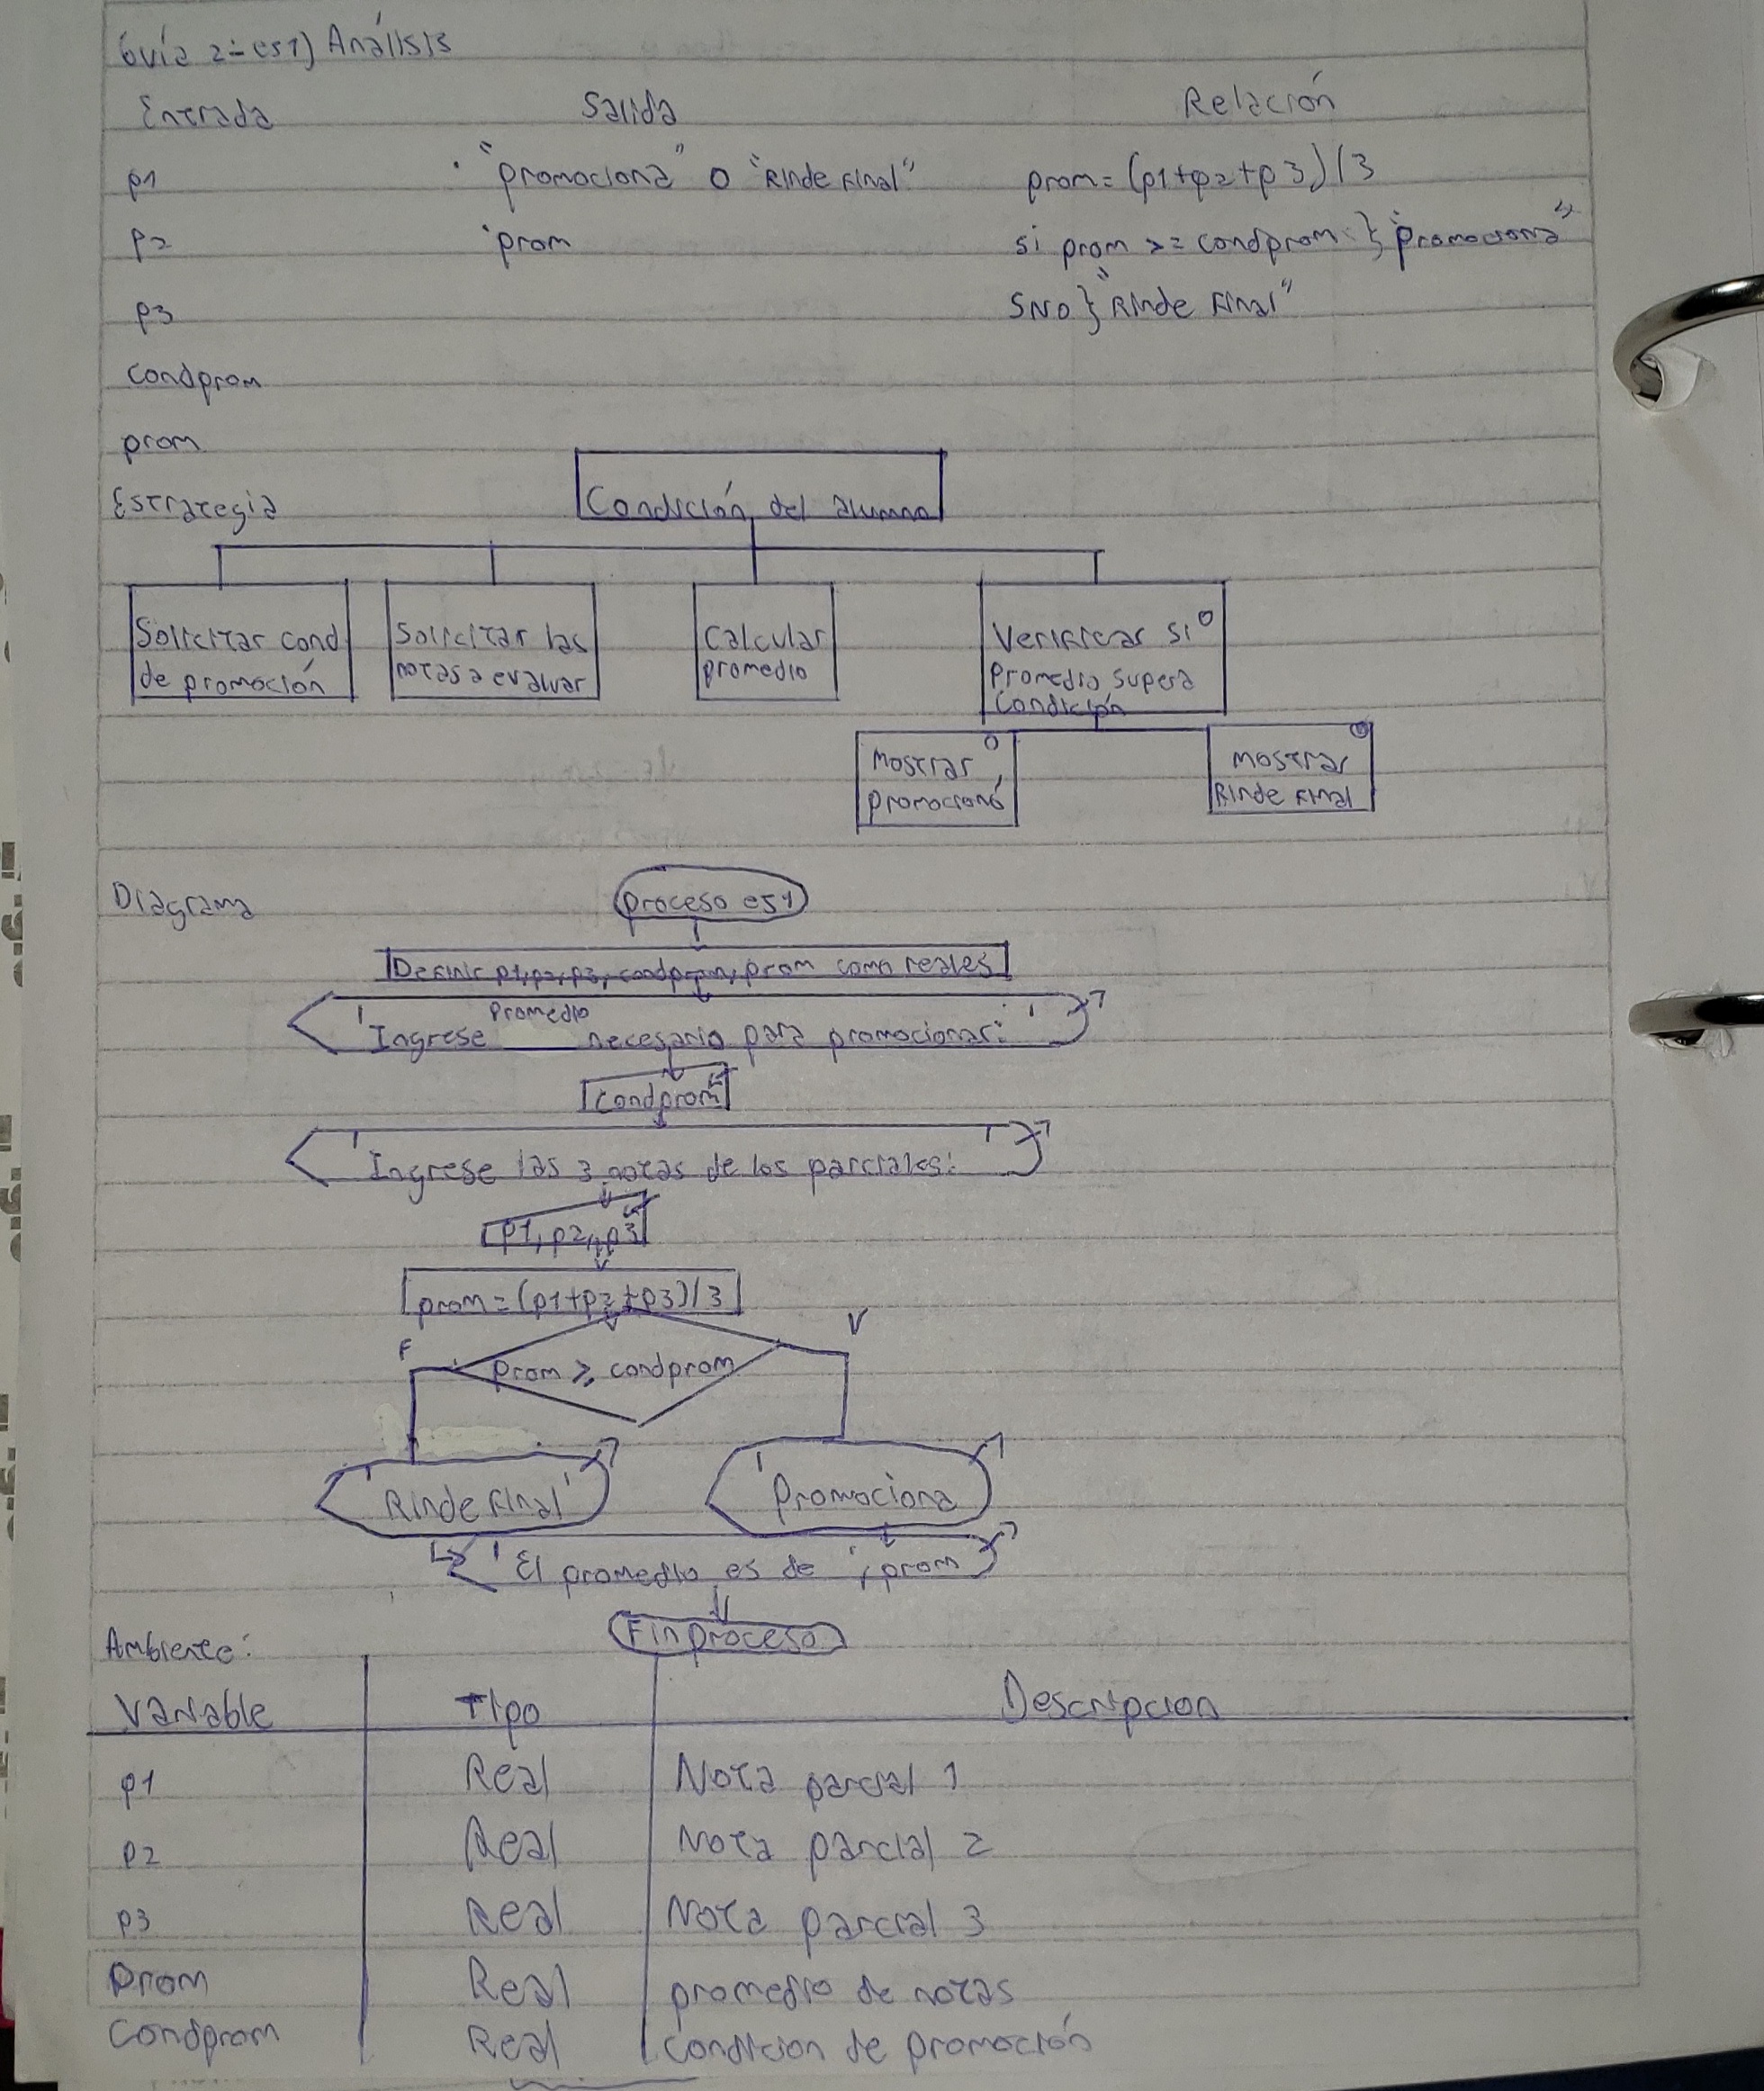 Guía 2: ej1) Análisis
Entrada Salida Relación
p1 · "promociona" o "Rinde Final" prom = (p1+p2+p3)/3
p2 · prom si prom >= condprom } "promociona"
p3 SNO } "Rinde Final"
condprom
prom
Estrategia Condición del alumno
Solicitar cond de promoción
Solicitar las notas a evaluar
Calcular promedio
Verificar si promedio supera condición
Mostrar promocionó
Mostrar Rinde Final
Diagrama
proceso ej1
Definir p1, p2, p3, condprom, prom como reales
'Ingrese Promedio necesario para promocionar: '
condprom
'Ingrese las 3 notas de los parciales: '
p1, p2, p3
prom = (p1+p2+p3)/3
F prom ≥ condprom V
'Rinde Final' 'Promociona
'El promedio es de ', prom
Fin proceso
Ambiente:
Variable Tipo Descripcion
p1 Real Nota parcial 1
p2 Real Nota parcial 2
p3 Real Nota parcial 3
Prom Real promedio de notas
Condprom Real condicion de promoción